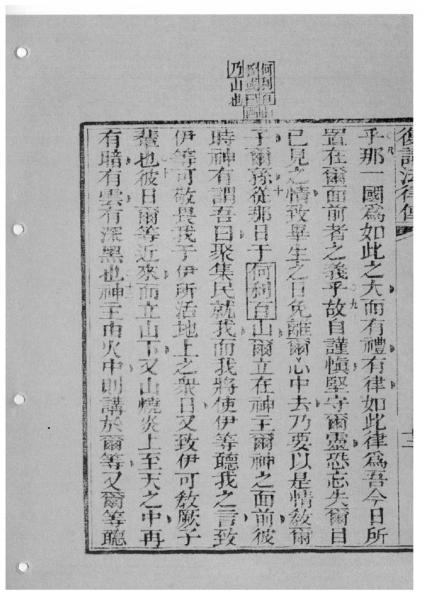 復講法律傳
乎那一國為如此之大而有禮有律如此律為吾今日所
置在爾面前者之義乎故自謹慎堅守爾靈恐忘失爾目
已見之情致畢生之日免離爾心中去乃要以是情敎爾
子爾孫從那日于何利百山爾立在神主爾神之面前彼
時神有謂吾曰聚集民就我而我將使伊等聽我之言致
伊等可敬畏我于伊所活地上之衆日又致伊可敎厥子
輩也彼日爾等近來而立山下又山燒炎上至天之中再
有暗有雲有深黑也神主由火中則講於爾等又爾等聽
何利百山
乃山也